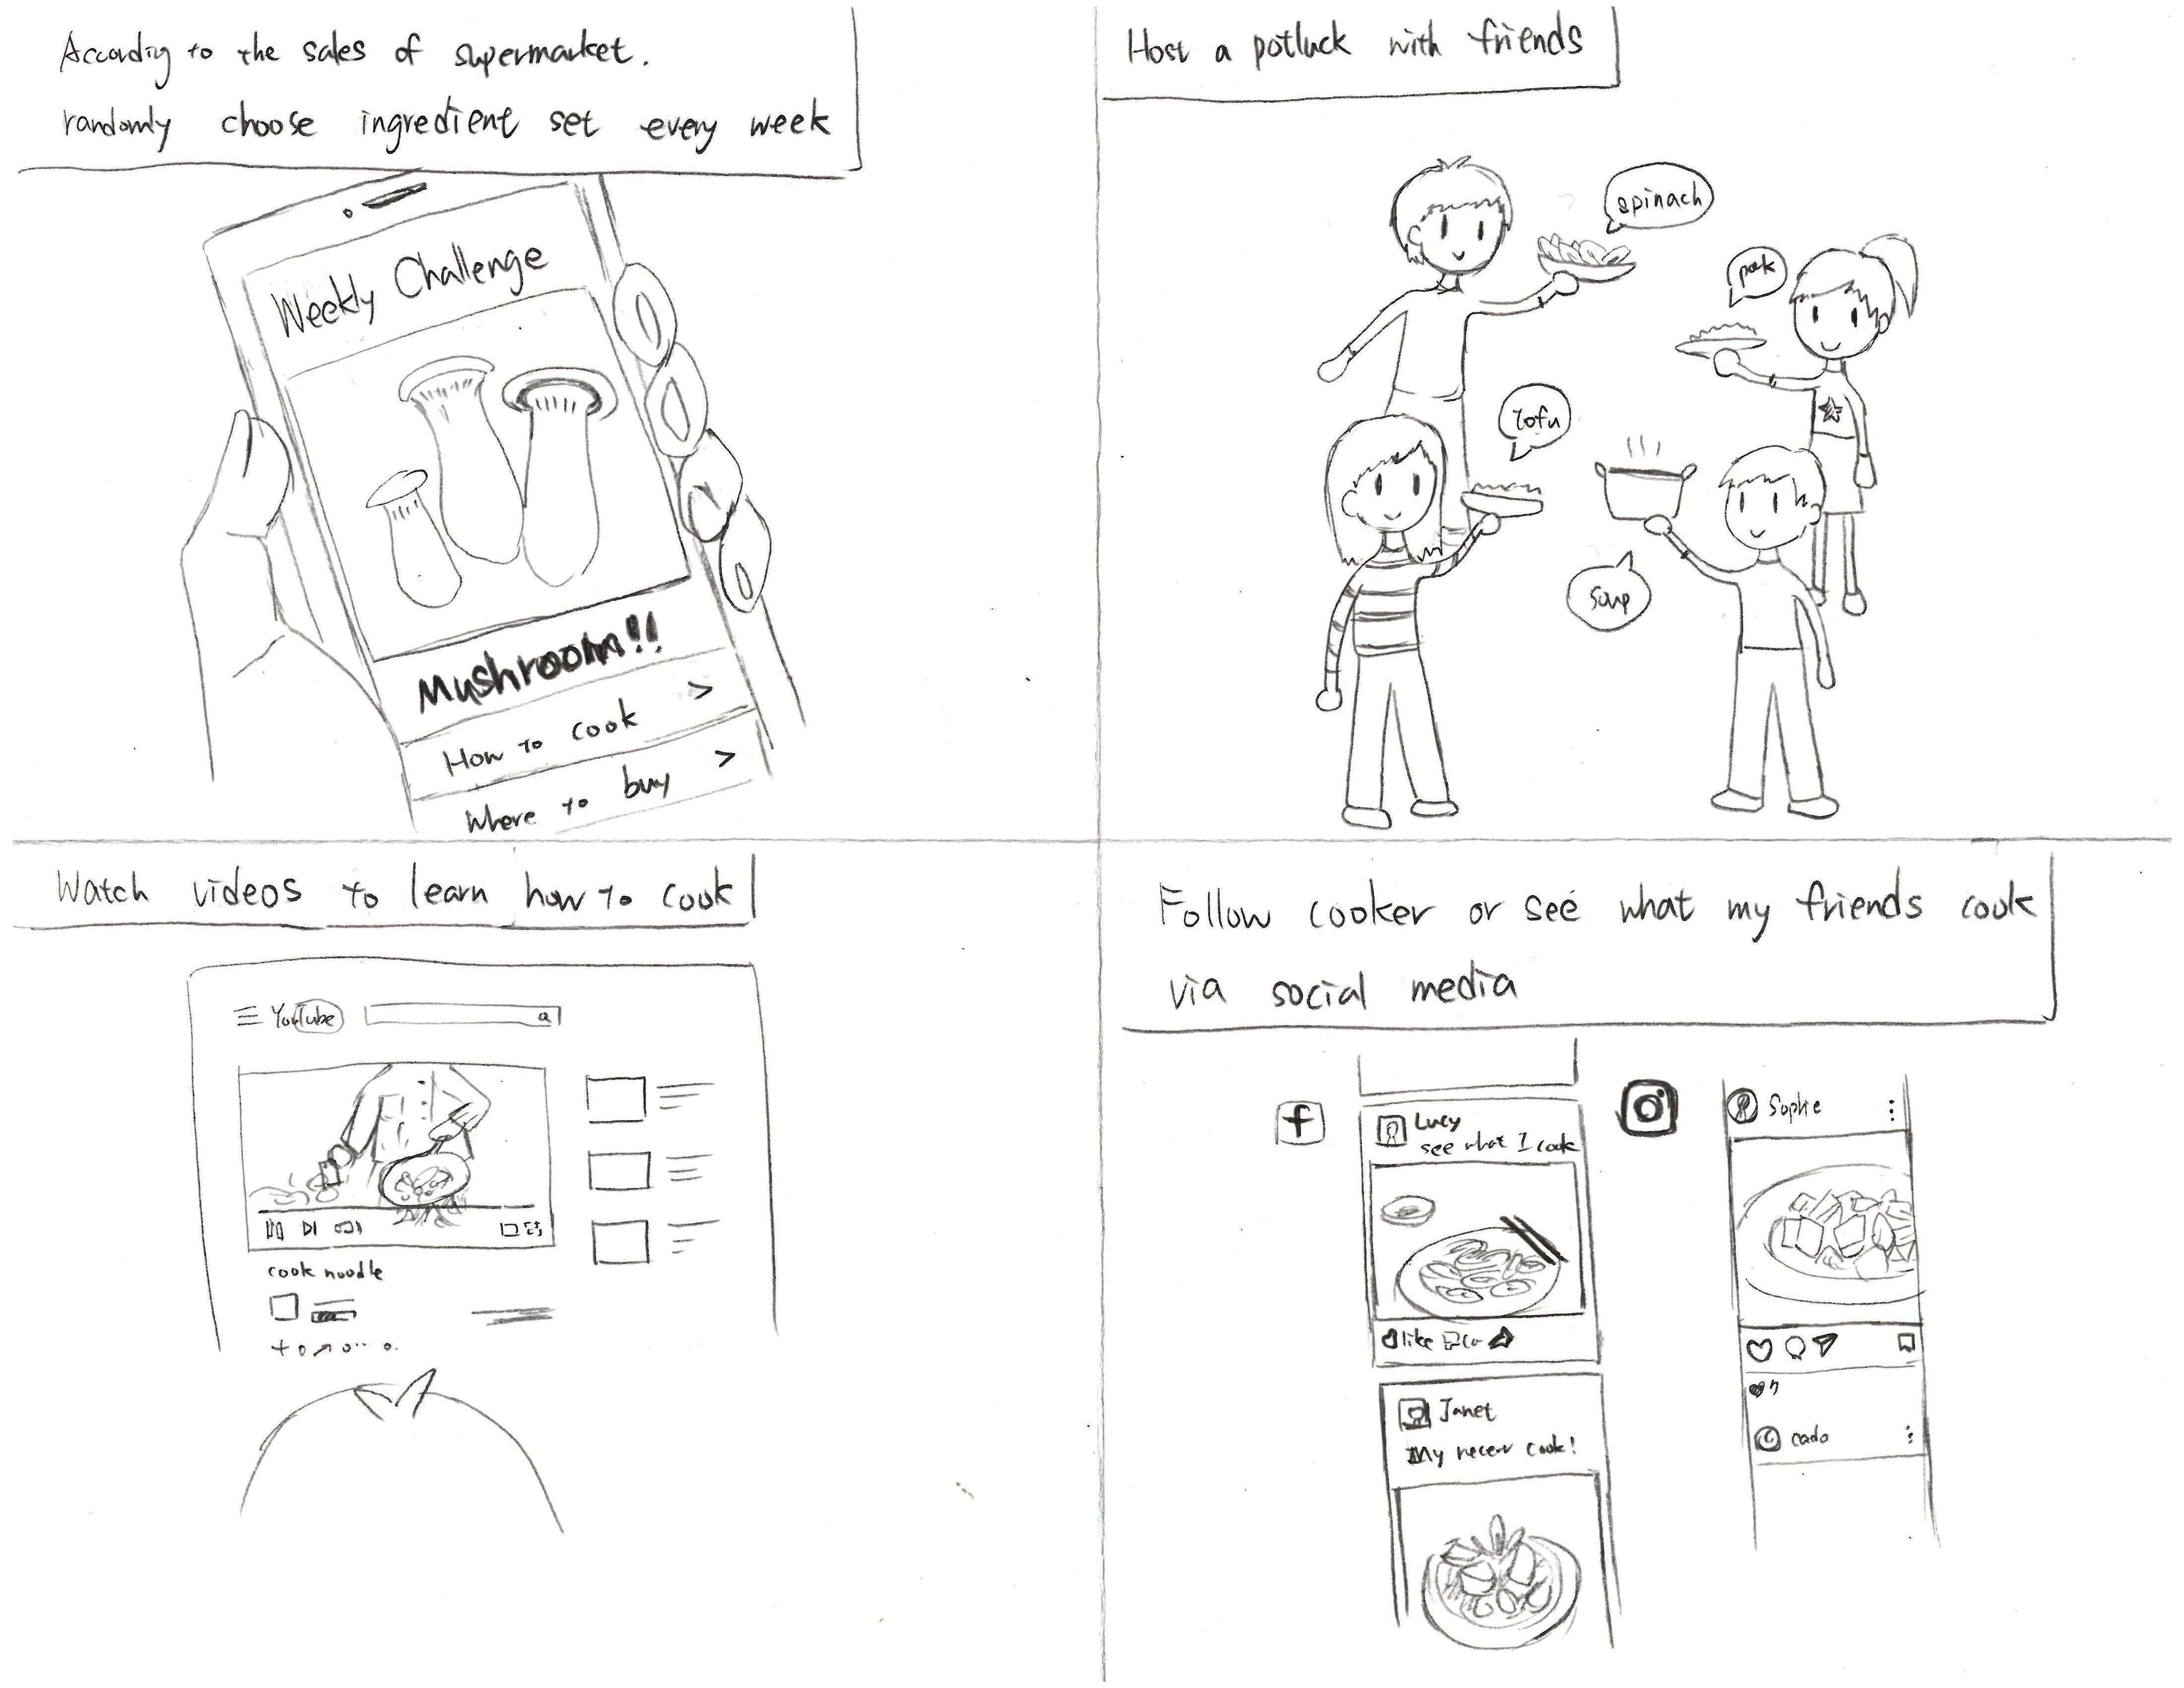 According to the sales of supermarket.
randomly choose ingredient set every week
Weekly Challenge
Mushroom!!
How to cook >
Where to buy >
Host a potluck with friends
spinach
pork
tofu
soup
Watch videos to learn how to cook
YouTube
cook noodle
Follow cooker or see what my friends cook
via social media
f
Lucy
see what I cook
like co
Janet
My recent cook!
Sophie
7
cado